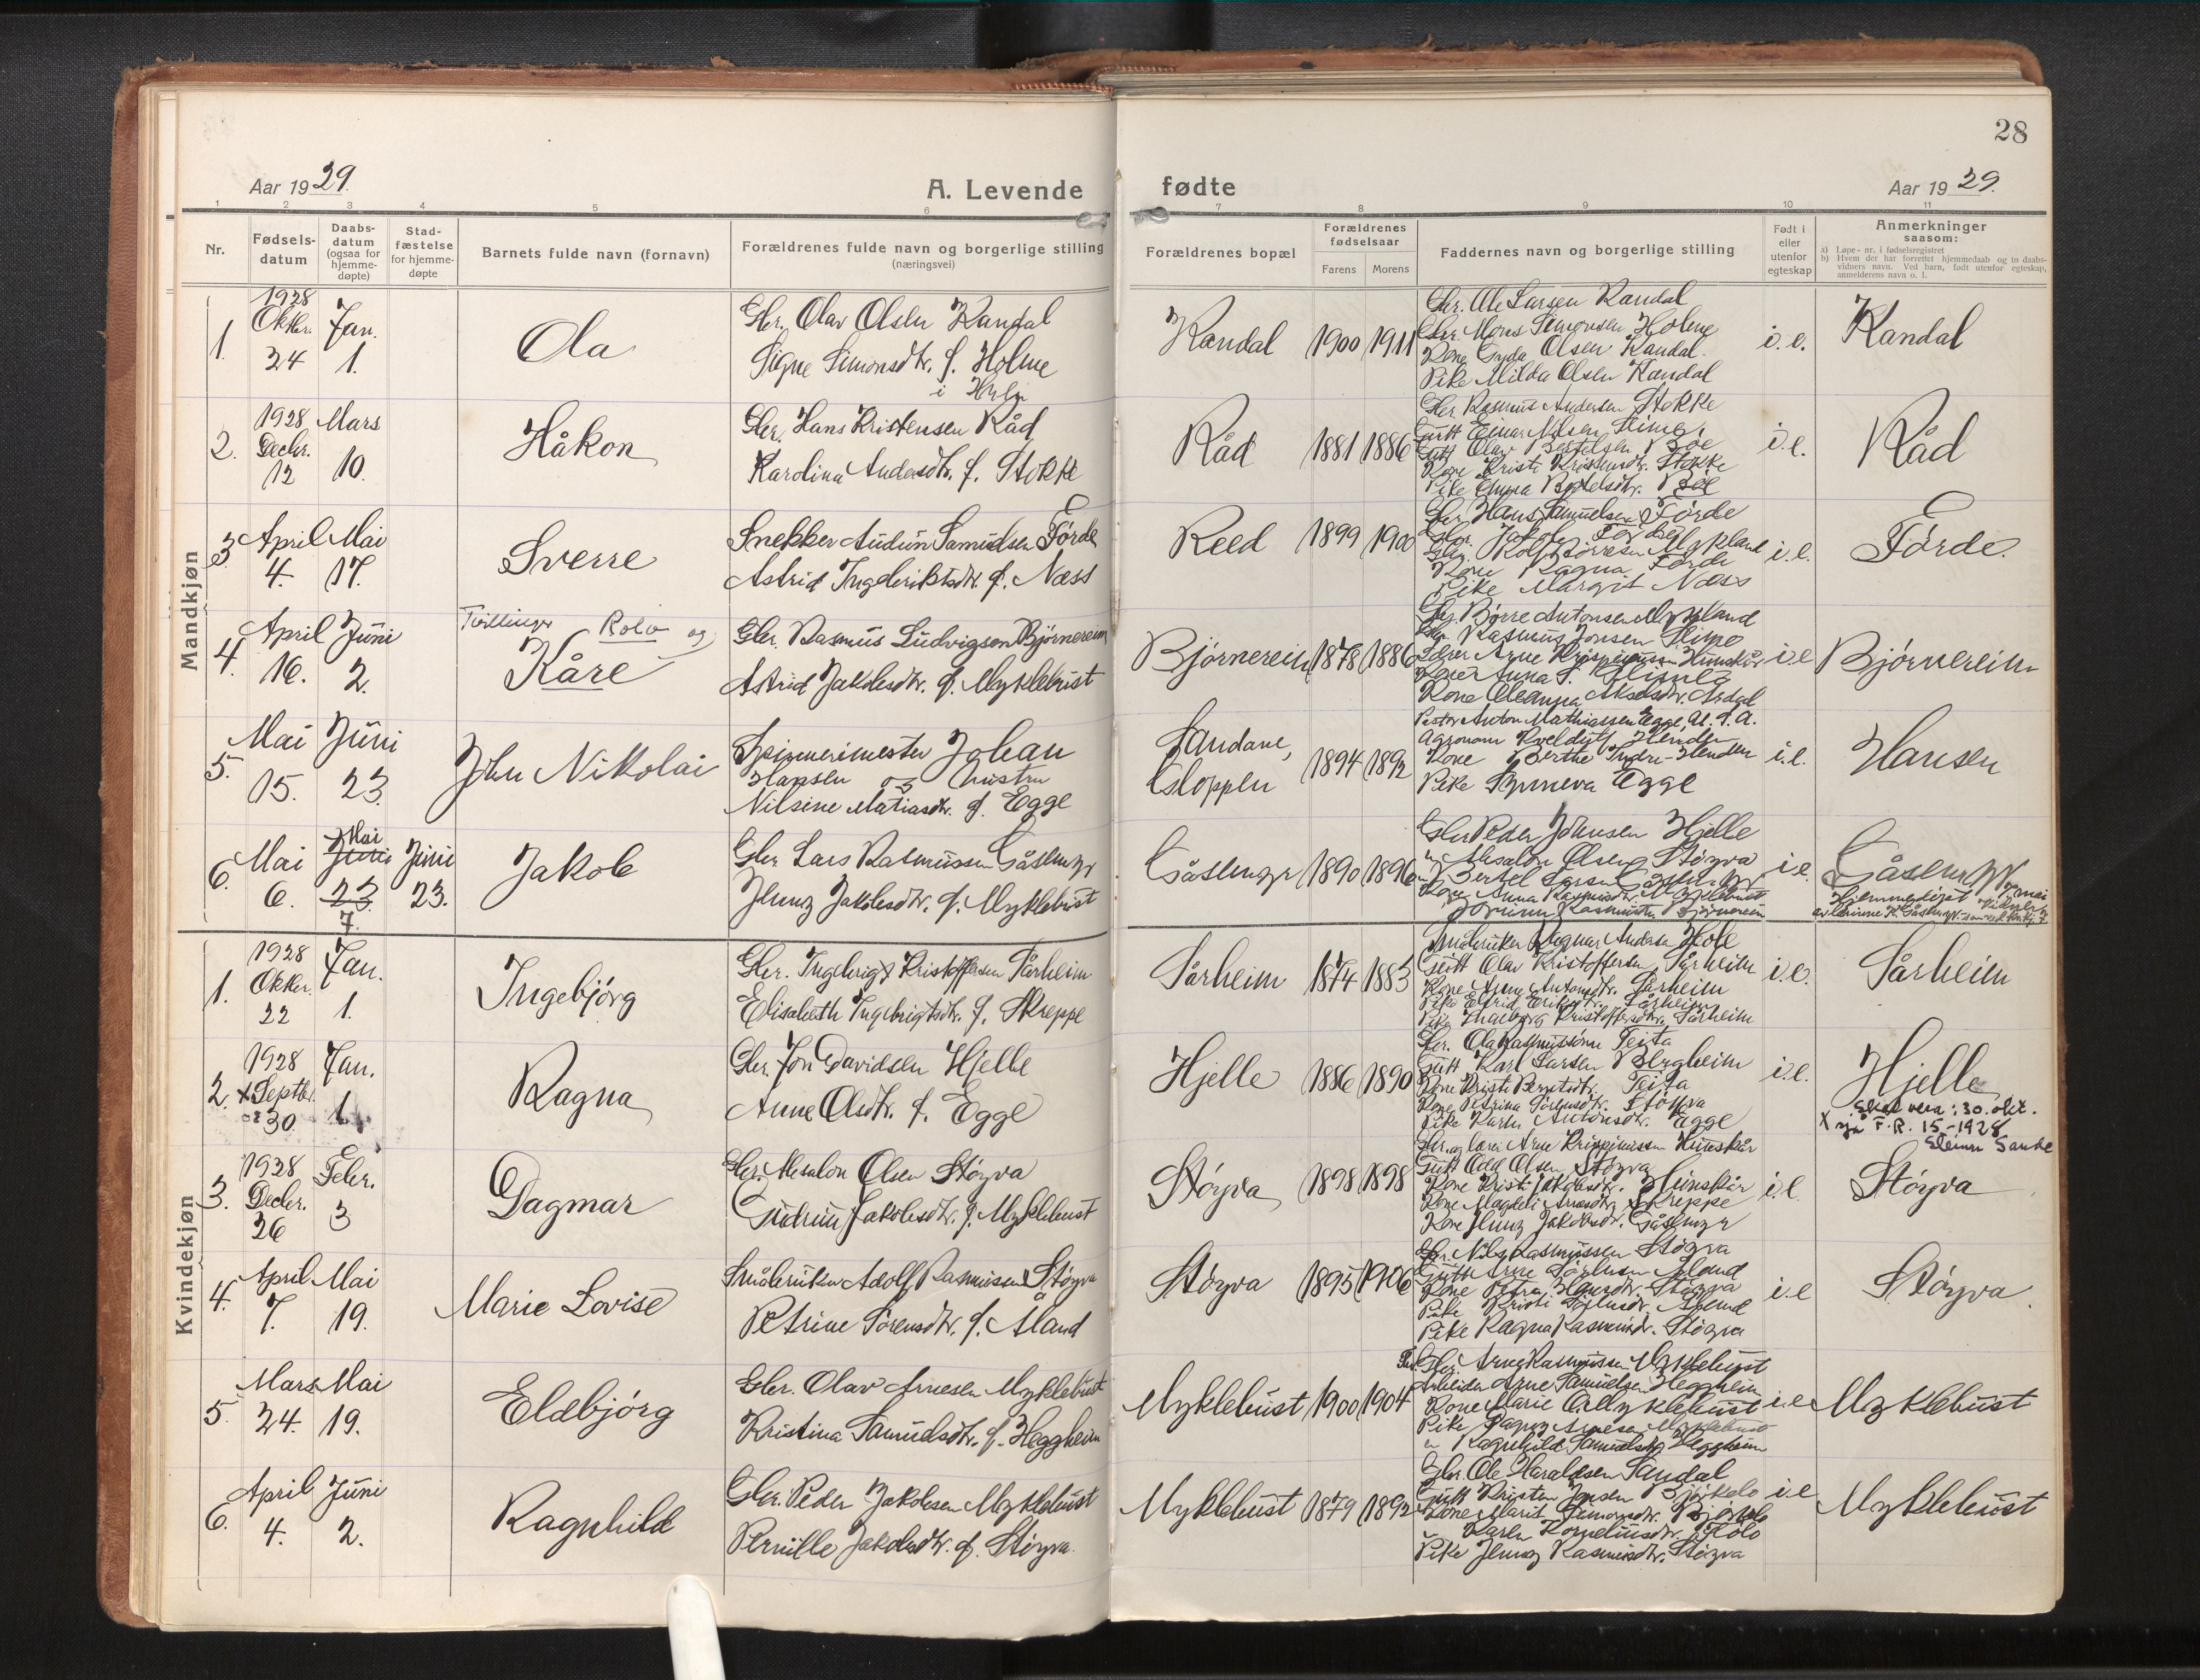 28
Aar 1929.
A. Levende
fødte
Aar 1929.
1 2 3 4 5 6 7 8 9 10 11
Nr.
Fødsels-
datum
Daabs-
datum
(ogsaa for
hjemme-
døpte)
Stad-
fæstelse
for hjemme-
døpte
Barnets fulde navn (fornavn)
Forældrenes fulde navn og borgerlige stilling
(næringsvei)
Forældrenes bopæl
Forældrenes
fødselsaar
Farens Morens
Faddernes navn og borgerlige stilling
Født i
eller
utenfor
egteskap
Anmerkninger
saasom:
a) Løpe-nr. i fødselsregistret
b) Hvem der har forrettet hjemmedaab og to daabs-
vidners navn. Ved barn, født utenfor egteskap,
anmelderens navn o. l.
Mandkjøn
1.
1928
Oktbr.
24
Jan.
1.
Ola
Gbr. Olav Olsen Kandal
Signe Simonsdtr. f. Holme
i
Kandal
1900 1911
Gbr. Ole Larsen Kandal
Gbr. Mons Simonsen Holme
Kone Gyda Olsen Kandal
Pike Milda Olsen Kandal
i.e.
Kandal
2.
1928
Decbr.
12
Mars
10.
Håkon
Gbr. Hans Kristensen Råd
Karolina Andersdtr. f. Stokke
Råd
1881 1886
Gbr Rasmus Andersen Stokke
Gutt Einar Nilsen
Gutt Olav Bertelsen Bøe
Kone Kristi Stokke
Pike Emma Bertelsdtr. Bøe
i.e.
Råd
3
April
4.
Mai
17.
Sverre
Snekker Audun Samuelsen Førde
Astrid Ingebriktsdtr. f. Næss
Reed
1899 1900
Gbr Hans Samuelsen Førde
Gbr. Jakob Førde
Gbr. Rolf Mykland
Kone Ragna Førde
Pike Margit Næss
i.e.
Førde.
4.
April
16.
Juni
2.
Tvillinger Rolv og
Kåre
Gbr. Rasmus Ludvigson Bjørnereim
Astrid Jakobsdtr. f. Myklebust
Bjørnereim
1878 1886
Gbr. Børre Antonsen Mykland
Gbr. Rasmus Jonsen
Lærer Arne Krispinussen Hunskår
Kone Anna
Kone Oleanna Akselsdtr. Årdal
i.e
Bjørnereim
5.
Mai
15.
Juni
23.
John Nikolai
Spinnerimester Johan
Hansen og hustru
Nilsine Matiasdtr. f. Egge
Sandane,
Gloppen
1894 1892
Pastor Anton Mathiassen Egge, U.S.A.
Agronom Kveldulf Henden
Kone Berthe Henden
Pike Synneva Egge
i.e.
Hansen
6.
Mai
6.
Mai
Juni
23.
7.
Juni
23.
Jakob
Gbr Lars Rasmussen Gåsemyr
Jenny Jakobsdtr. f. Myklebust
Gåsemyr
1890 1896
Gbr Peder Johnsen Hjelle
" Absalon Olsen Støyva
" Bertel Larsen Gåsemyr
Kone Anna Rasmusdtr. Myklebust
Jorunn Rasmusdtr. Bjørnereim
i.e.
Gåsemyr
Hjemmedøpt
Kvindekjøn
1.
1928
Oktbr.
22
Jan.
1.
Ingebjørg
Gbr. Ingebrigt Kristoffersen Sårheim
Elisabeth Ingebrigtsdtr. f. Skreppe
Sårheim
1874 1883
Småbruker Ragnar Andersen Hole
Gutt Olav Kristoffersen Sårheim
Kone Anna Antonsdtr. Sårheim
Pike Eldrid Eriksdtr. Sårheim
Pike Ingeborg Kristoffersdtr. Sårheim
i.e.
Sårheim
2.
1928
x Septbr.
30
Jan.
1.
Ragna
Gbr. Jon Davidsen Hjelle
Anne Olsdtr. f. Egge
Hjelle
1886 1890
Gbr. Ola Rasmussønn Teita
Gutt Karl Larsen Bergheim
Kone Kristi Berntsdtr. Teita
Kone Petrina Sørensdtr. Støyva
Pike Karen Antonsdtr. Egge
i.e.
Hjelle
x Skal vera: 30. okt.
sjå F. R. 15-1928
Einar Sande
3.
1928
Decbr.
26
Febr.
3
Dagmar
Gbr. Absalon Olsen Støyva
Gudrun Jakobsdtr. f. Myklebust
Støyva
1898 1898
Gbr. og lærer Arne Krispinussen Hunskår
Gutt Odd Olsen Støyva
Kone Kristi Jakobsdtr. Hunskår
Kone Magnhil Arnesdtr. Skreppe
Kone Jenny Jakobsdtr. Gåsemyr
i.e.
Støyva
4.
April
7.
Mai
19.
Marie Lovise
Småbruker Adolf Rasmussen Støyva
Petrine Sørensdtr. f. Åland
Støyva
1895 1906
Gbr. Nils Rasmussen Støyva
Gutt Arne Sørensen Åland
Kone Petra Hansdtr. Støyva
Pike Kristi Sørensdtr. Åland
Pike Ragna Rasmusdtr. Støyva
i.e
Støyva.
5.
Mars
24.
Mai
19.
Eldbjørg
Gbr. Olav Arnesen Myklebust
Kristina Samuelsdtr. f. Heggheim
Myklebust
1900 1904
Gbr Arne Rasmussen Myklebust
Arbeider Arne Samuelsen Heggheim
Kone Marie O. Myklebust
Pike Dagny Arnesen Myklebust
" Ragnhild Samuelsdtr. Heggheim
i.e
Myklebust
6.
April
4.
Juni
2.
Ragnhild
Gbr. Peder Jakobsen Myklebust
Pernille Jakobsdtr. f. Støyva.
Myklebust
1879 1892
Gbr. Ole Haraldsen Sandal
Gutt Kristen Jonsen Bjørkelo
Kone Marie Simonsdtr. Bjørkelo
" Karen Korneliusdtr. Holo
Pike Jenny Rasmusdtr. Støyva
i.e
Myklebust